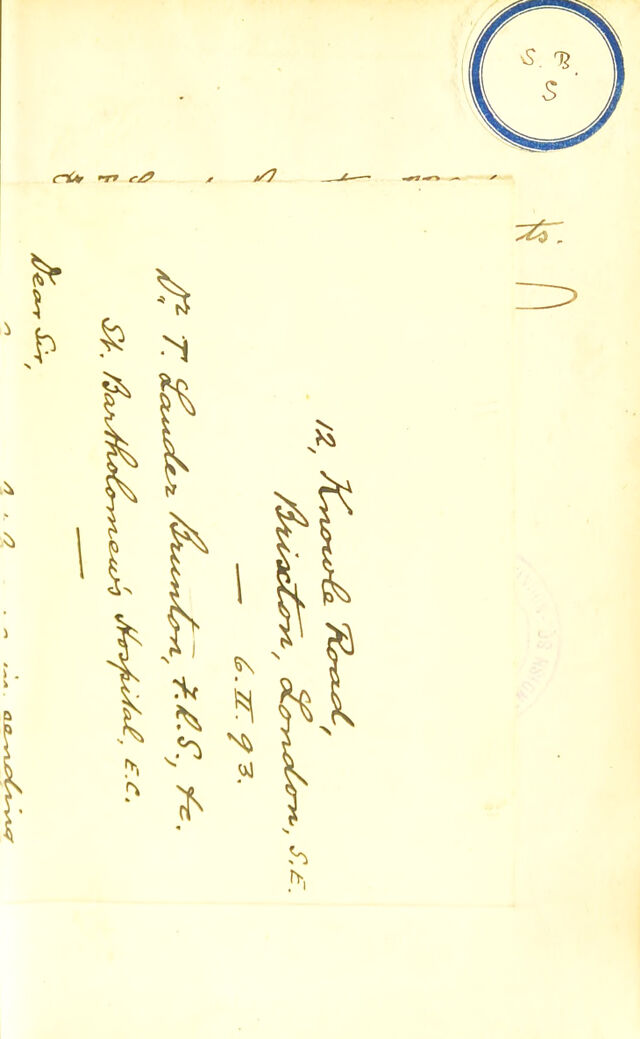 S. B.
S
ts.
12, Knowle Road,
Brixton, London, S.E.
— 6.II.93.
Dr. T. Lauder Brunton, F.R.S., &c.
St. Bartholomew's Hospital, E.C.
—
Dear Sir,
in sending